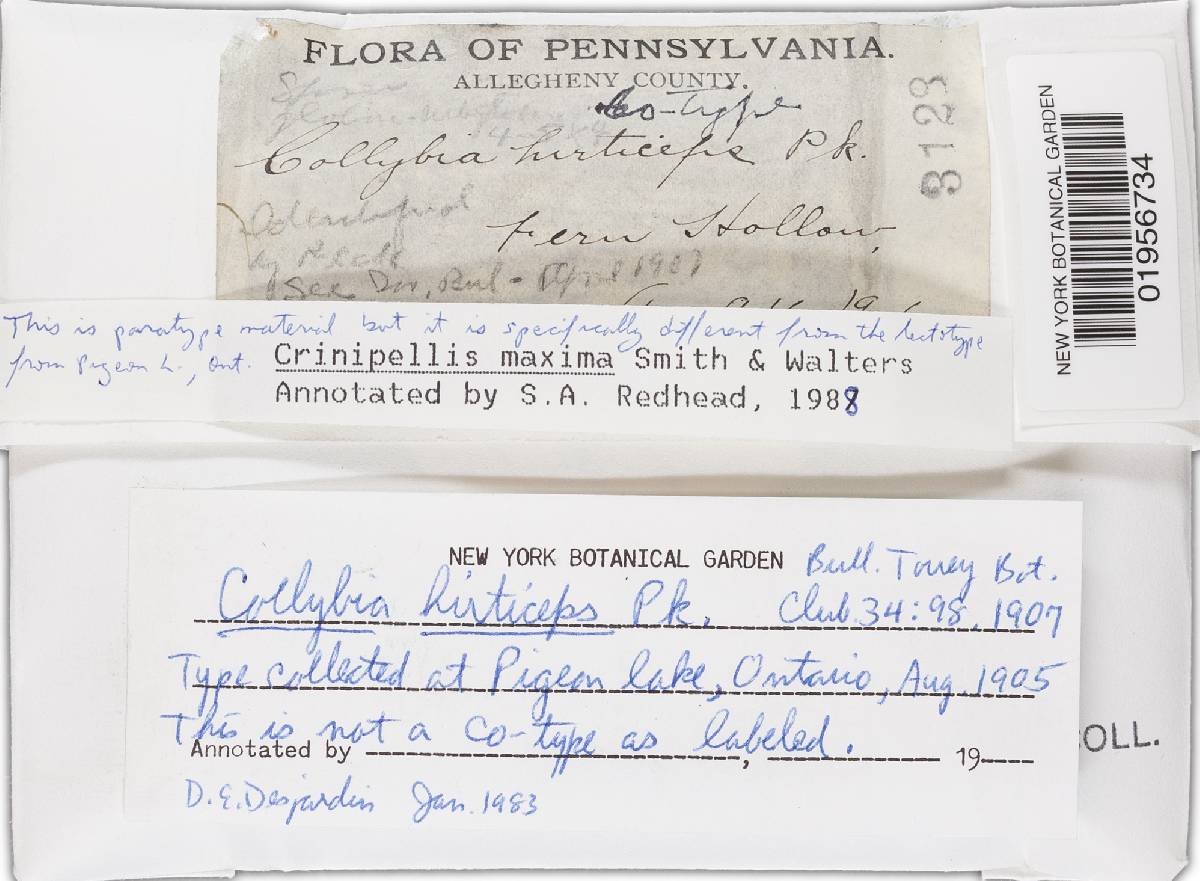 FLORA OF PENNSYLVANIA.
ALLEGHENY COUNTY.
Co-type
Collybia hirticeps Pk.
3123
Fern Hollow,
by
See Bul - April 1907
NEW YORK BOTANICAL GARDEN
01956734
This is paratype material but it is specifically different from the lectotype
from Pigeon L., Ont.
Crinipellis maxima Smith & Walters
Annotated by S.A. Redhead, 1988
NEW YORK BOTANICAL GARDEN Bull. Torrey Bot.
Collybia hirticeps Pk. Club. 34:98. 1907
Type collected at Pigeon lake, Ontario, Aug. 1905
This is not a co-type as labeled.
Annotated by , 19
OLL.
D.E. Desjardin Jan. 1983